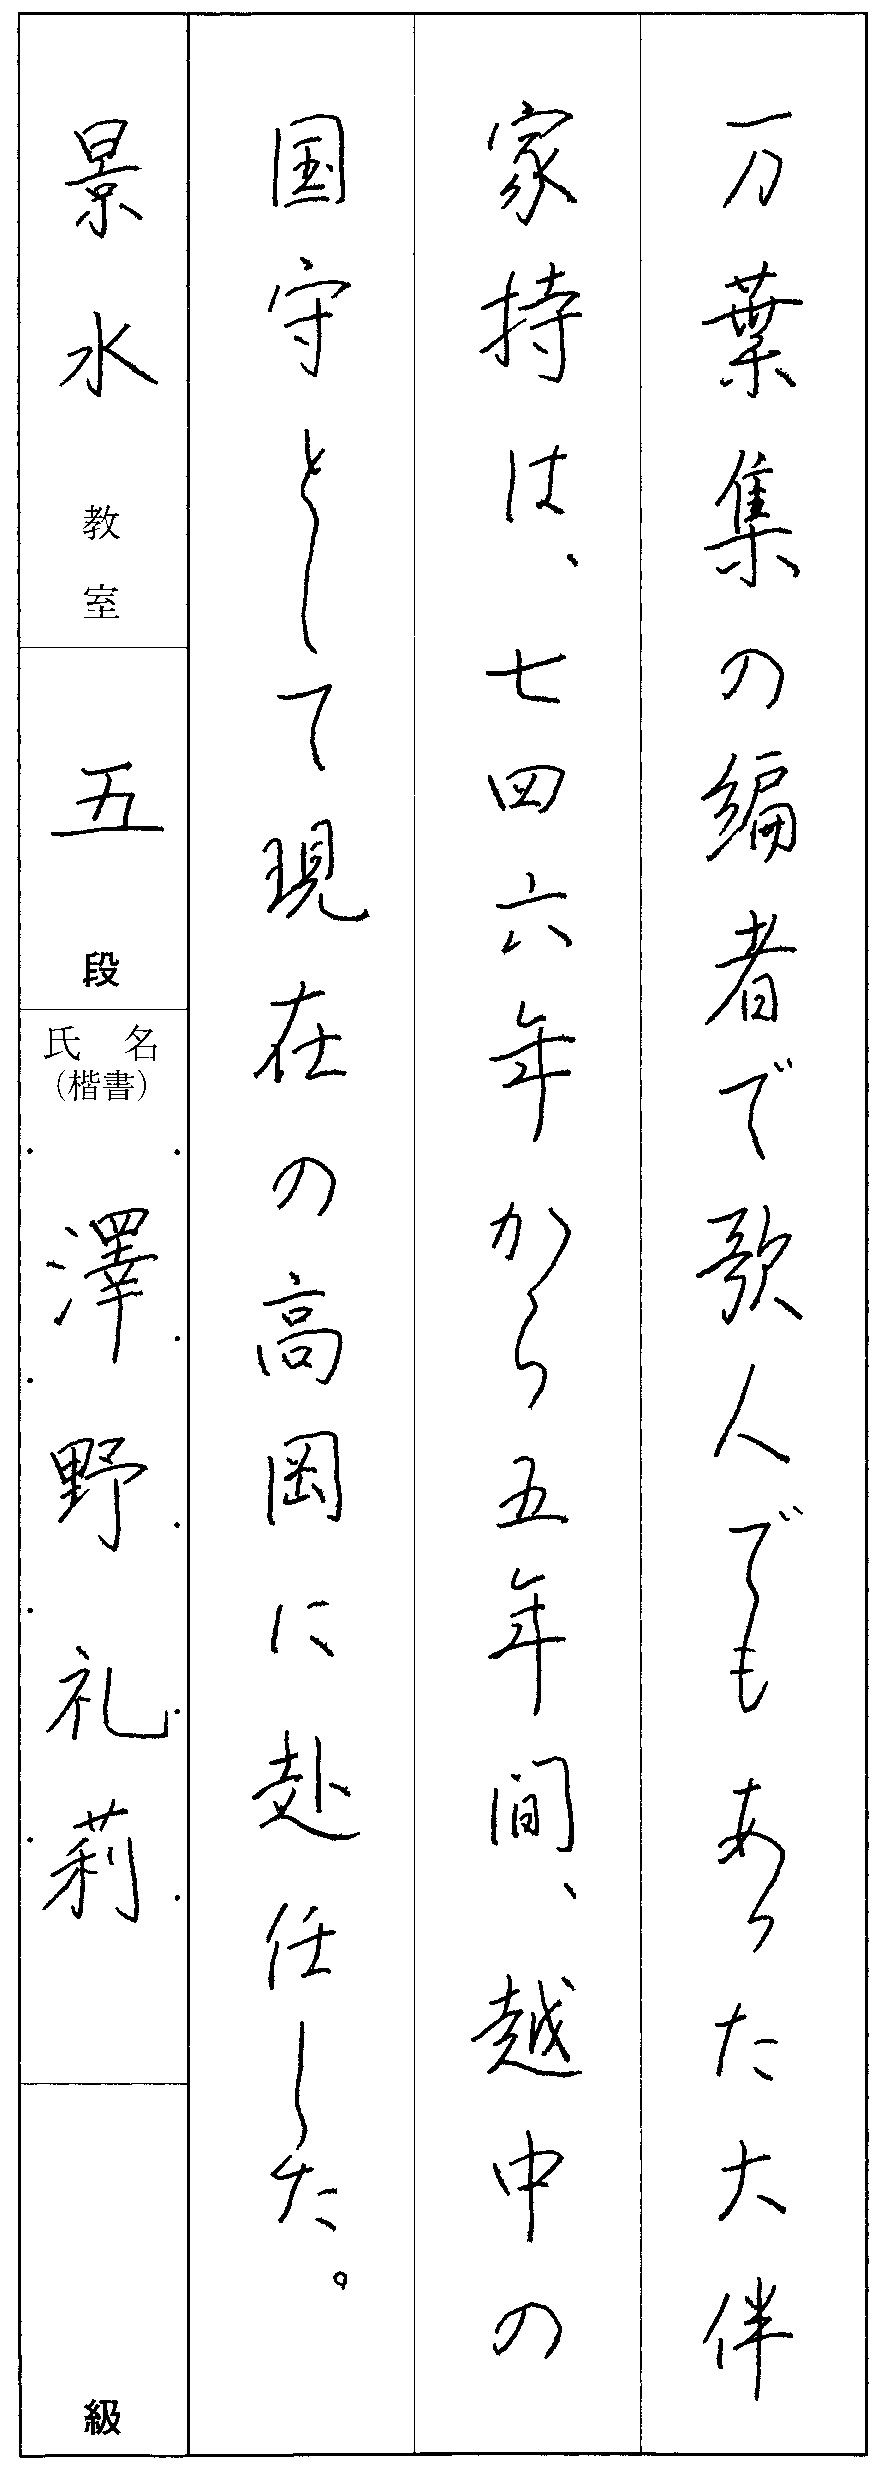 万葉集の編者で歌人でもあった大伴
家持は、七四六年から五年間、越中の
国守として現在の高岡に赴任した。
景水教室
五段
氏名
(楷書)
澤野礼莉
級